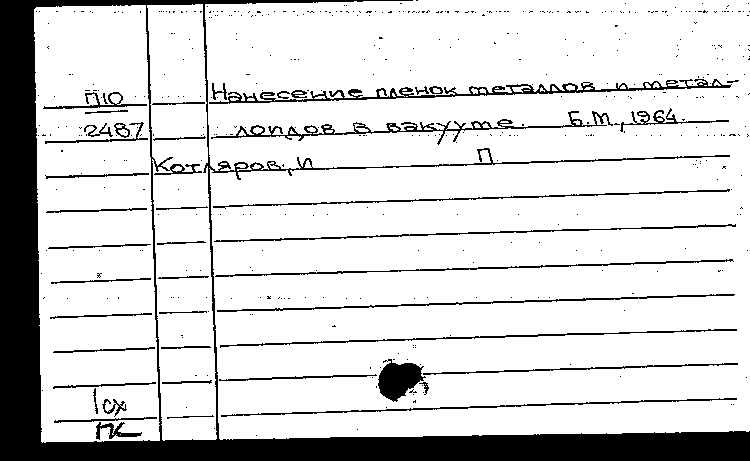 П10 Нанесение пленок металлов и метал-
2487 лоидов в вакууме. Б.М., 1964.
Котляров, И П
1сх
ПК